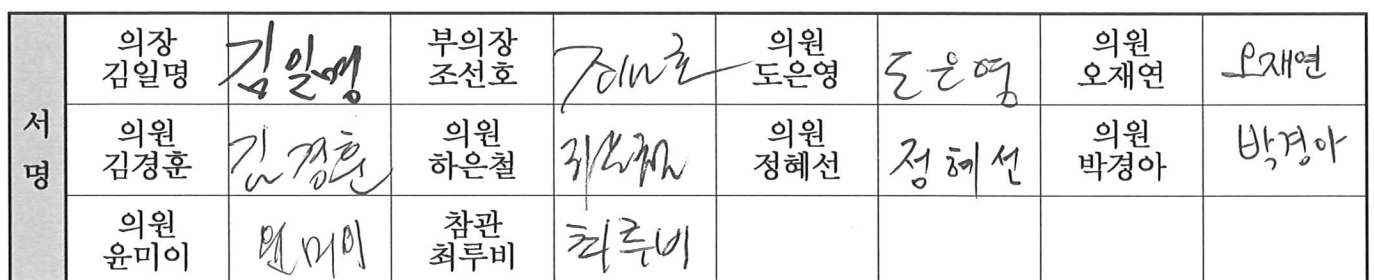 서명
의장 김일명 김일명 부의장 조선호 조선호 의원 도은영 도은영 의원 오재연 오재연
의원 김경훈 김경훈 의원 하은철 하은철 의원 정혜선 정혜선 의원 박경아 박경아
의원 윤미이 윤미이 참관 최루비 최루비